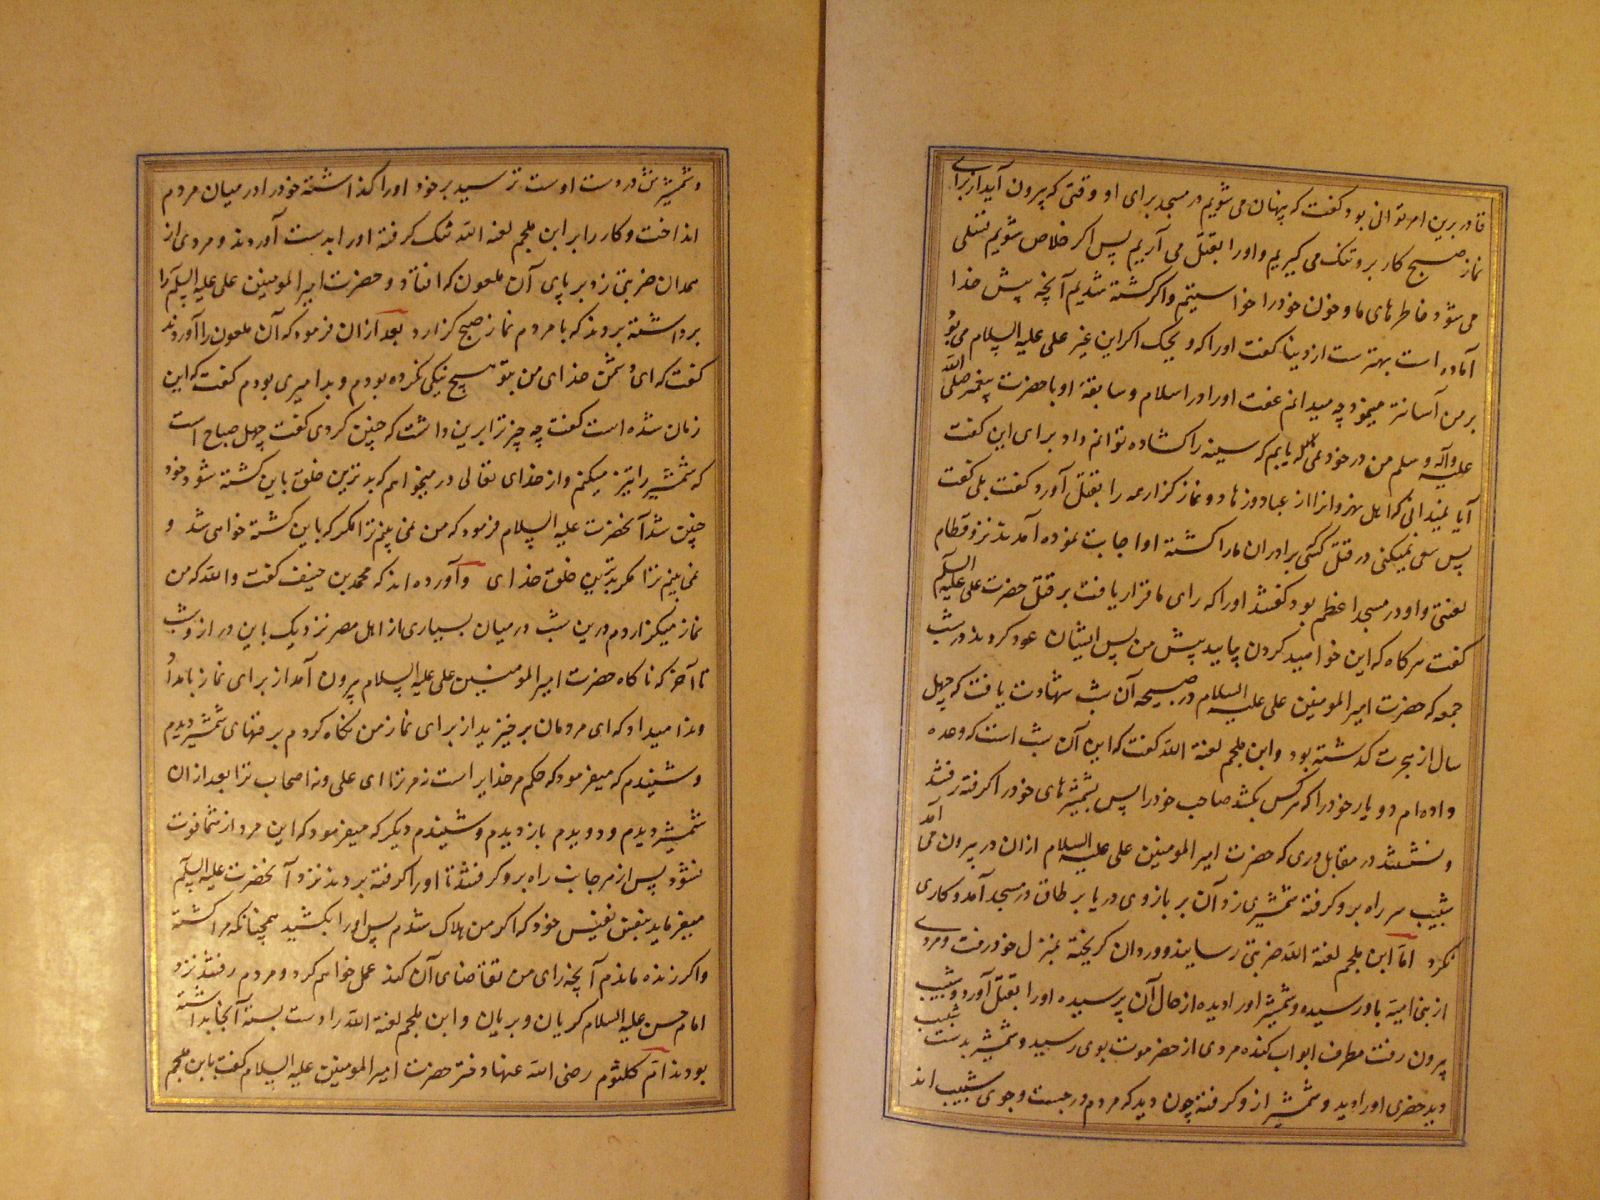 قادر برین امر توانی بود گفت که پنهان می شویم در مسجد برای او وقتی که بیرون آید از برای
نماز صبح کار برو تنک می کیریم و او را بقتل می آریم پس اکر خلاص شویم تسلی
می شود خاطرهای ما و خون خود را خواستیم و اکر کشته شدیم آنچه پیش خدا
آماده است بهتر ست از دنیا گفت او را که ویحک اکر این غیر علی علیه السلام می بود
بر من آسانتر مینمود چه میدانم عفت او را در اسلام و سابقهٔ او با حضرت پیغمبر صلی الله
علیه وآله وسلم من در خود نمی یابم که سینه را کشاده توانم داد برای این گفت
آیا نمیدانی که اهل نهروان را از عباد و زهاد و نماز کزار همه را بقتل آورد گفت بلی گفت
پس سعی نمیکنی در قتل کسی برادران ما را کشته او اجابت نموده آمدند نزد قطام
لعنتی و او در مسجد اعظم بود گفتند او را که رای ما قرار یافت بر قتل حضرت علی علیه السلم
گفت هرکاه که این خواهید کردن بیایید پیش من پس ایشان عود کردند در شب
جمعه که حضرت امیر المومنین علی علیه السلام در صبیحه آن شب شهادت یافت که چهل
سال از هجرت گذشته بود و ابن ملجم لعنة الله گفت که این آن شب است که وعده
داده ام دو یار خود را که هر کس بکشد صاحب خود را پس شمشیرهای خود را کرفته رفتند
و نشستند در مقابل دری که حضرت امیر المومنین علی علیه السلام از ان در بیرون می آمد
شبیب سر راه برو کرفته شمشیری زد آن بر بازوی در یا بر طاق در مسجد آمد و کاری
نکرد اما ابن ملجم لعنة الله ضربتی رسانید و وردان کریخته بمنزل خود رفت و مردی
از بنی امیّه باو رسید و شمشیر او را دیده از حال آن پرسیده او را بقتل آورد و شبیب
بیرون رفت بطرف ابواب کنده مردی از حضرموت بوی رسید و شمشیر بدست شبیب
دید حضرمی او را دید و شمشیر از و کرفته چون دید که مردم در جست و جوی شبیب اند
و شمشیرش در دست اوست ترسید بر خود او را کذاشته خود را در میان مردم
انداخت و کار را بر ابن ملجم لعنة الله تنک کرفته او را بدست آوردند و مردی از
همدان ضربتی زد بر پای آن ملعون که افتاد و حضرت امیر المومنین علی علیه السلم را
برداشته بردند که با مردم نماز صبح کزارد بعد از ان فرمود که آن ملعون را آوردند
گفت که ای دشمن خدای من بتو هیچ نیکی نکرده بودم و بد امیری بودم گفت که این
زمان شده است گفت چه چیز ترا برین داشت که چنین کردی گفت چهل صباح است
که شمشیر را تیز میکنم و از خدای تعالی در میخواهم که بدترین خلق باین کشته شود خود
چنین شد آنحضرت علیه السلام فرمود که من نمی بینم ترا مکر که باین کشته خواهی شد و
نمی بینم ترا مکر بدترین خلق خدای و آورده اند که محمد بن حنیف گفت والله که من
نماز میکزاردم درین شب در میان بسیاری از اهل مصر نزدیک باین در از اول شب
تا آخر که ناکاه حضرت امیر المومنین علی علیه السلام بیرون آمد از برای نماز بامداد
و ندا میداد که ای مردمان برخیزید از برای نماز من نکاه کردم برقهای شمشیر دیدم
و شنیدم که میفرمود که حکم مر خدایراست نه مر ترا ای علی و نه اصحاب ترا بعد از ان
شمشیر دیدم و دویدم باز دیدم و شنیدم دیکر که میفرمود که این مرد از شما فوت
نشود پس از هر جانب راه برو کرفتند تا او را کرفته بردند نزد آنحضرت علیه السلم
میفرماید بنفس نفیس خود که اکر من هلاک شدم پس او را بکشید همچنانکه مرا کشته
و اکر زنده ماندم آنچه رای من تقاضای آن کند عمل خواهم کرد و مردم رفتند نزد
امام حسن علیه السلام کریان و بریان و ابن ملجم لعنة الله را دست بسته آنجا بداشته
بودند ام کلثوم رضی الله عنها دختر حضرت امیر المومنین علیه السلام گفت بابن ملجم